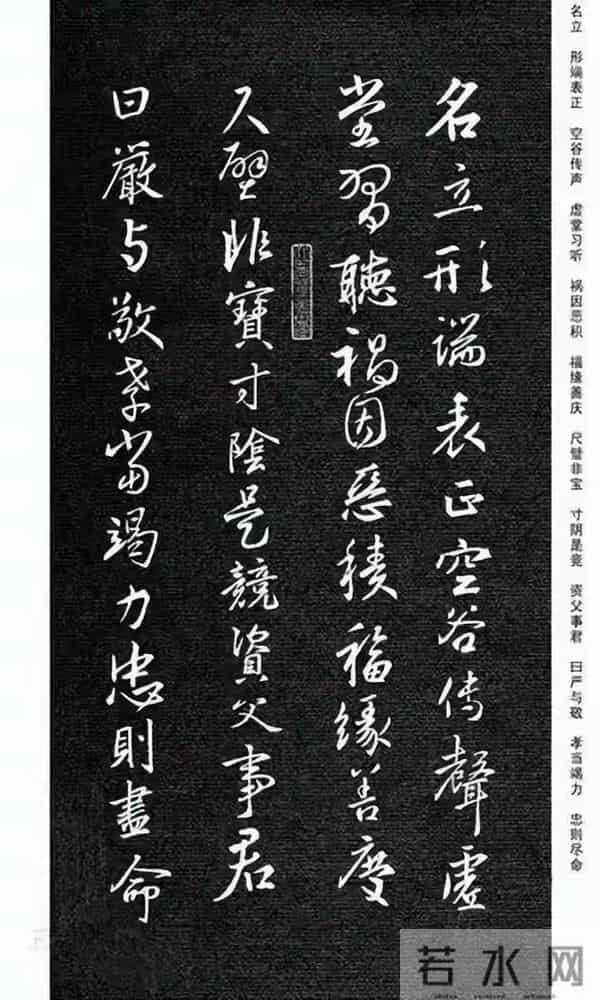 名立 形端表正 空谷传声 虚堂习听 祸因恶积 福缘善庆 尺璧非宝 寸阴是竞 资父事君 曰严与敬 孝当竭力 忠则尽命
名立形端表正空谷傳聲虛
堂習聽禍因惡積福緣善慶
尺璧非寶寸陰是競資父事君
曰嚴与敬孝當竭力忠則盡命
若水网